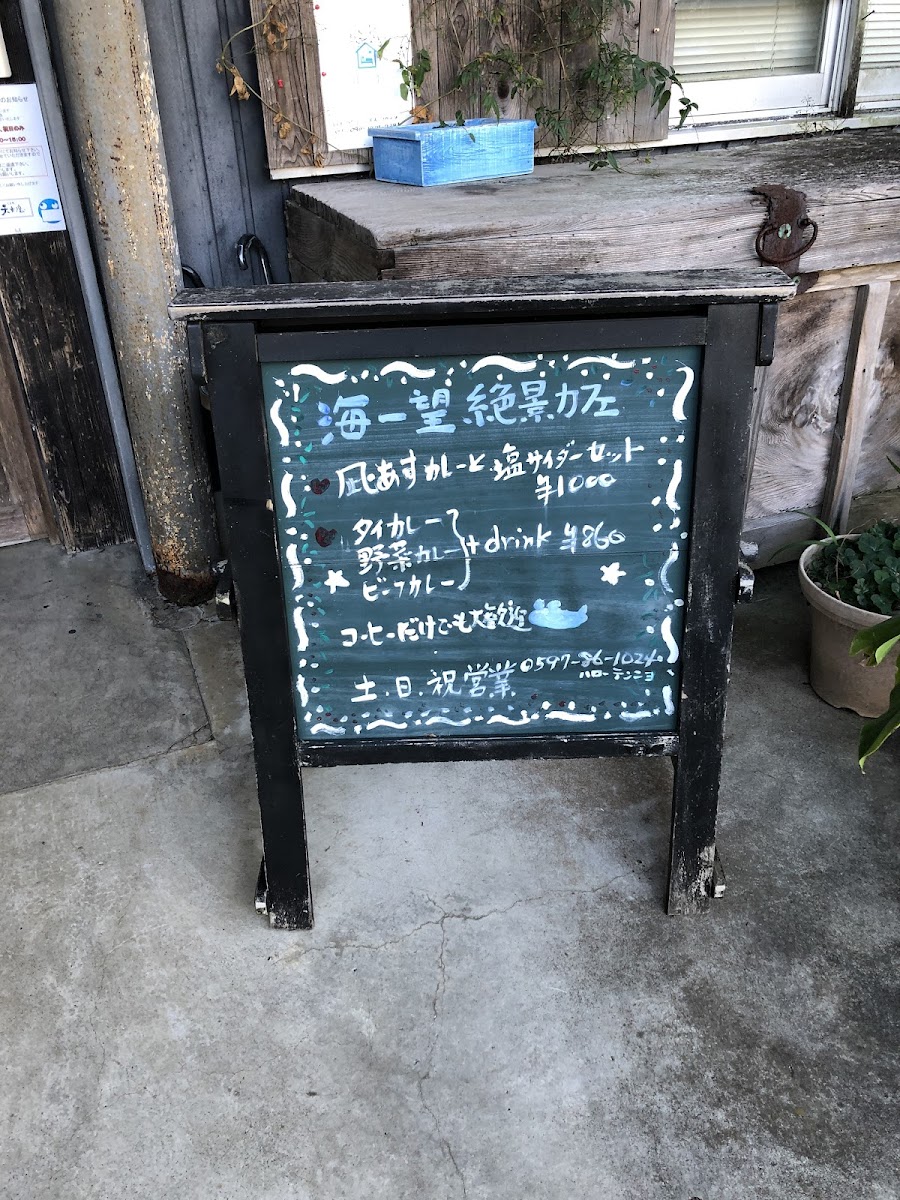 のお知らせ
海一望 絶景カフェ
凪あすカレーと 塩サイダーセット
¥1000
タイカレー
野菜カレー
ビーフカレー
+drink ¥860
コーヒーだけでも大歓迎
土.日.祝営業
0597-86-1024
ハローテンニョ